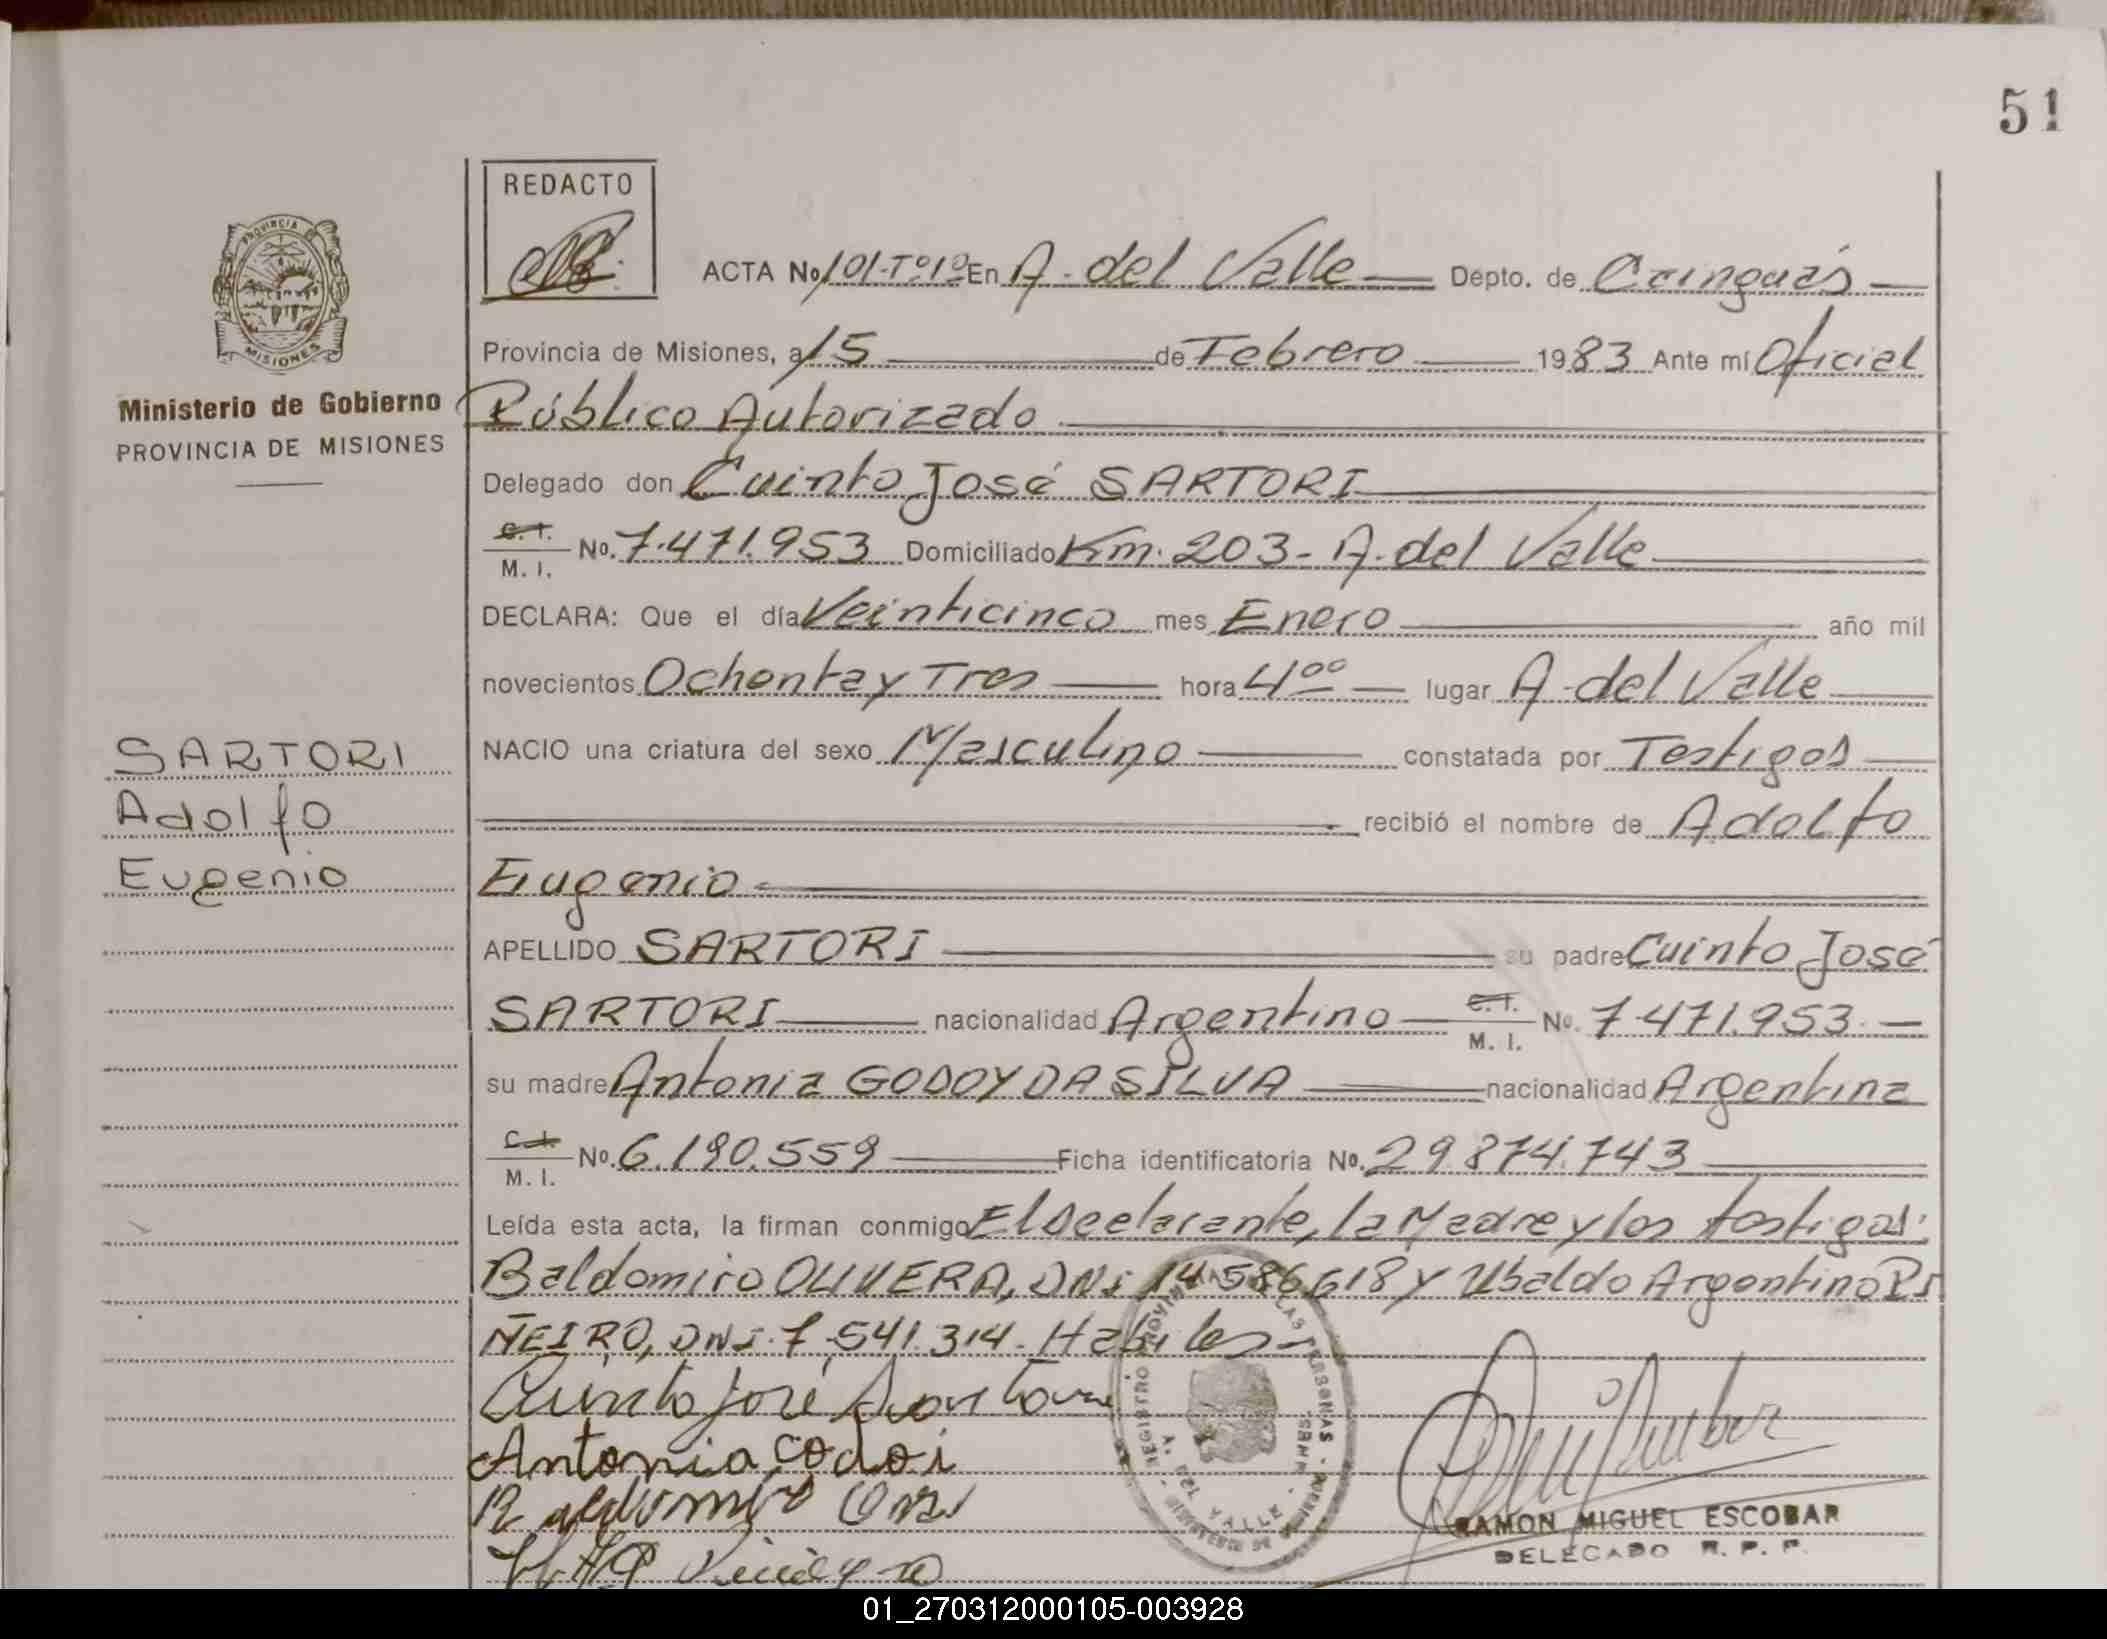 51
REDACTO
PROVINCIA
MISIONES
Ministerio de Gobierno
PROVINCIA DE MISIONES
ACTA No 101-Tº1º En A. del Valle Depto. de Cainguás
Provincia de Misiones, a 15 de Febrero 1983 Ante mí Oficial
Público Autorizado
Delegado don Cuinto José SARTORI
C.I. M. I. No. 7.471.953 Domiciliado Km. 203- A. del Valle
DECLARA: Que el día Veinticinco mes Enero año mil
novecientos Ochenta y Tres hora 4⁰⁰ lugar A. del Valle
NACIO una criatura del sexo Masculino constatada por Testigos
recibió el nombre de Adolfo
Eugenio
SARTORI
Adolfo
Eugenio
APELLIDO SARTORI su padre Cuinto José
SARTORI nacionalidad Argentino C.I. M. I. No. 7.471.953.
su madre Antonia GODOY DA SILVA nacionalidad Argentina
C.I. M. I. No. 6.190.559 Ficha identificatoria No. 29.874.743
Leída esta acta, la firman conmigo El Declarante, la Madre y los testigos:
Baldomiro OLIVERA, DNI 14.586.618 y Ubaldo Argentino PI
ÑEIRO, DNI. 7.541.314. Habiles
Cuinto José Sartori
Antonia codoi
RAMON MIGUEL ESCOBAR
DELEGADO R. P. P.
REGISTRO PROVINCIAL DE LAS PERSONAS
A. DEL VALLE
01_270312000105-003928